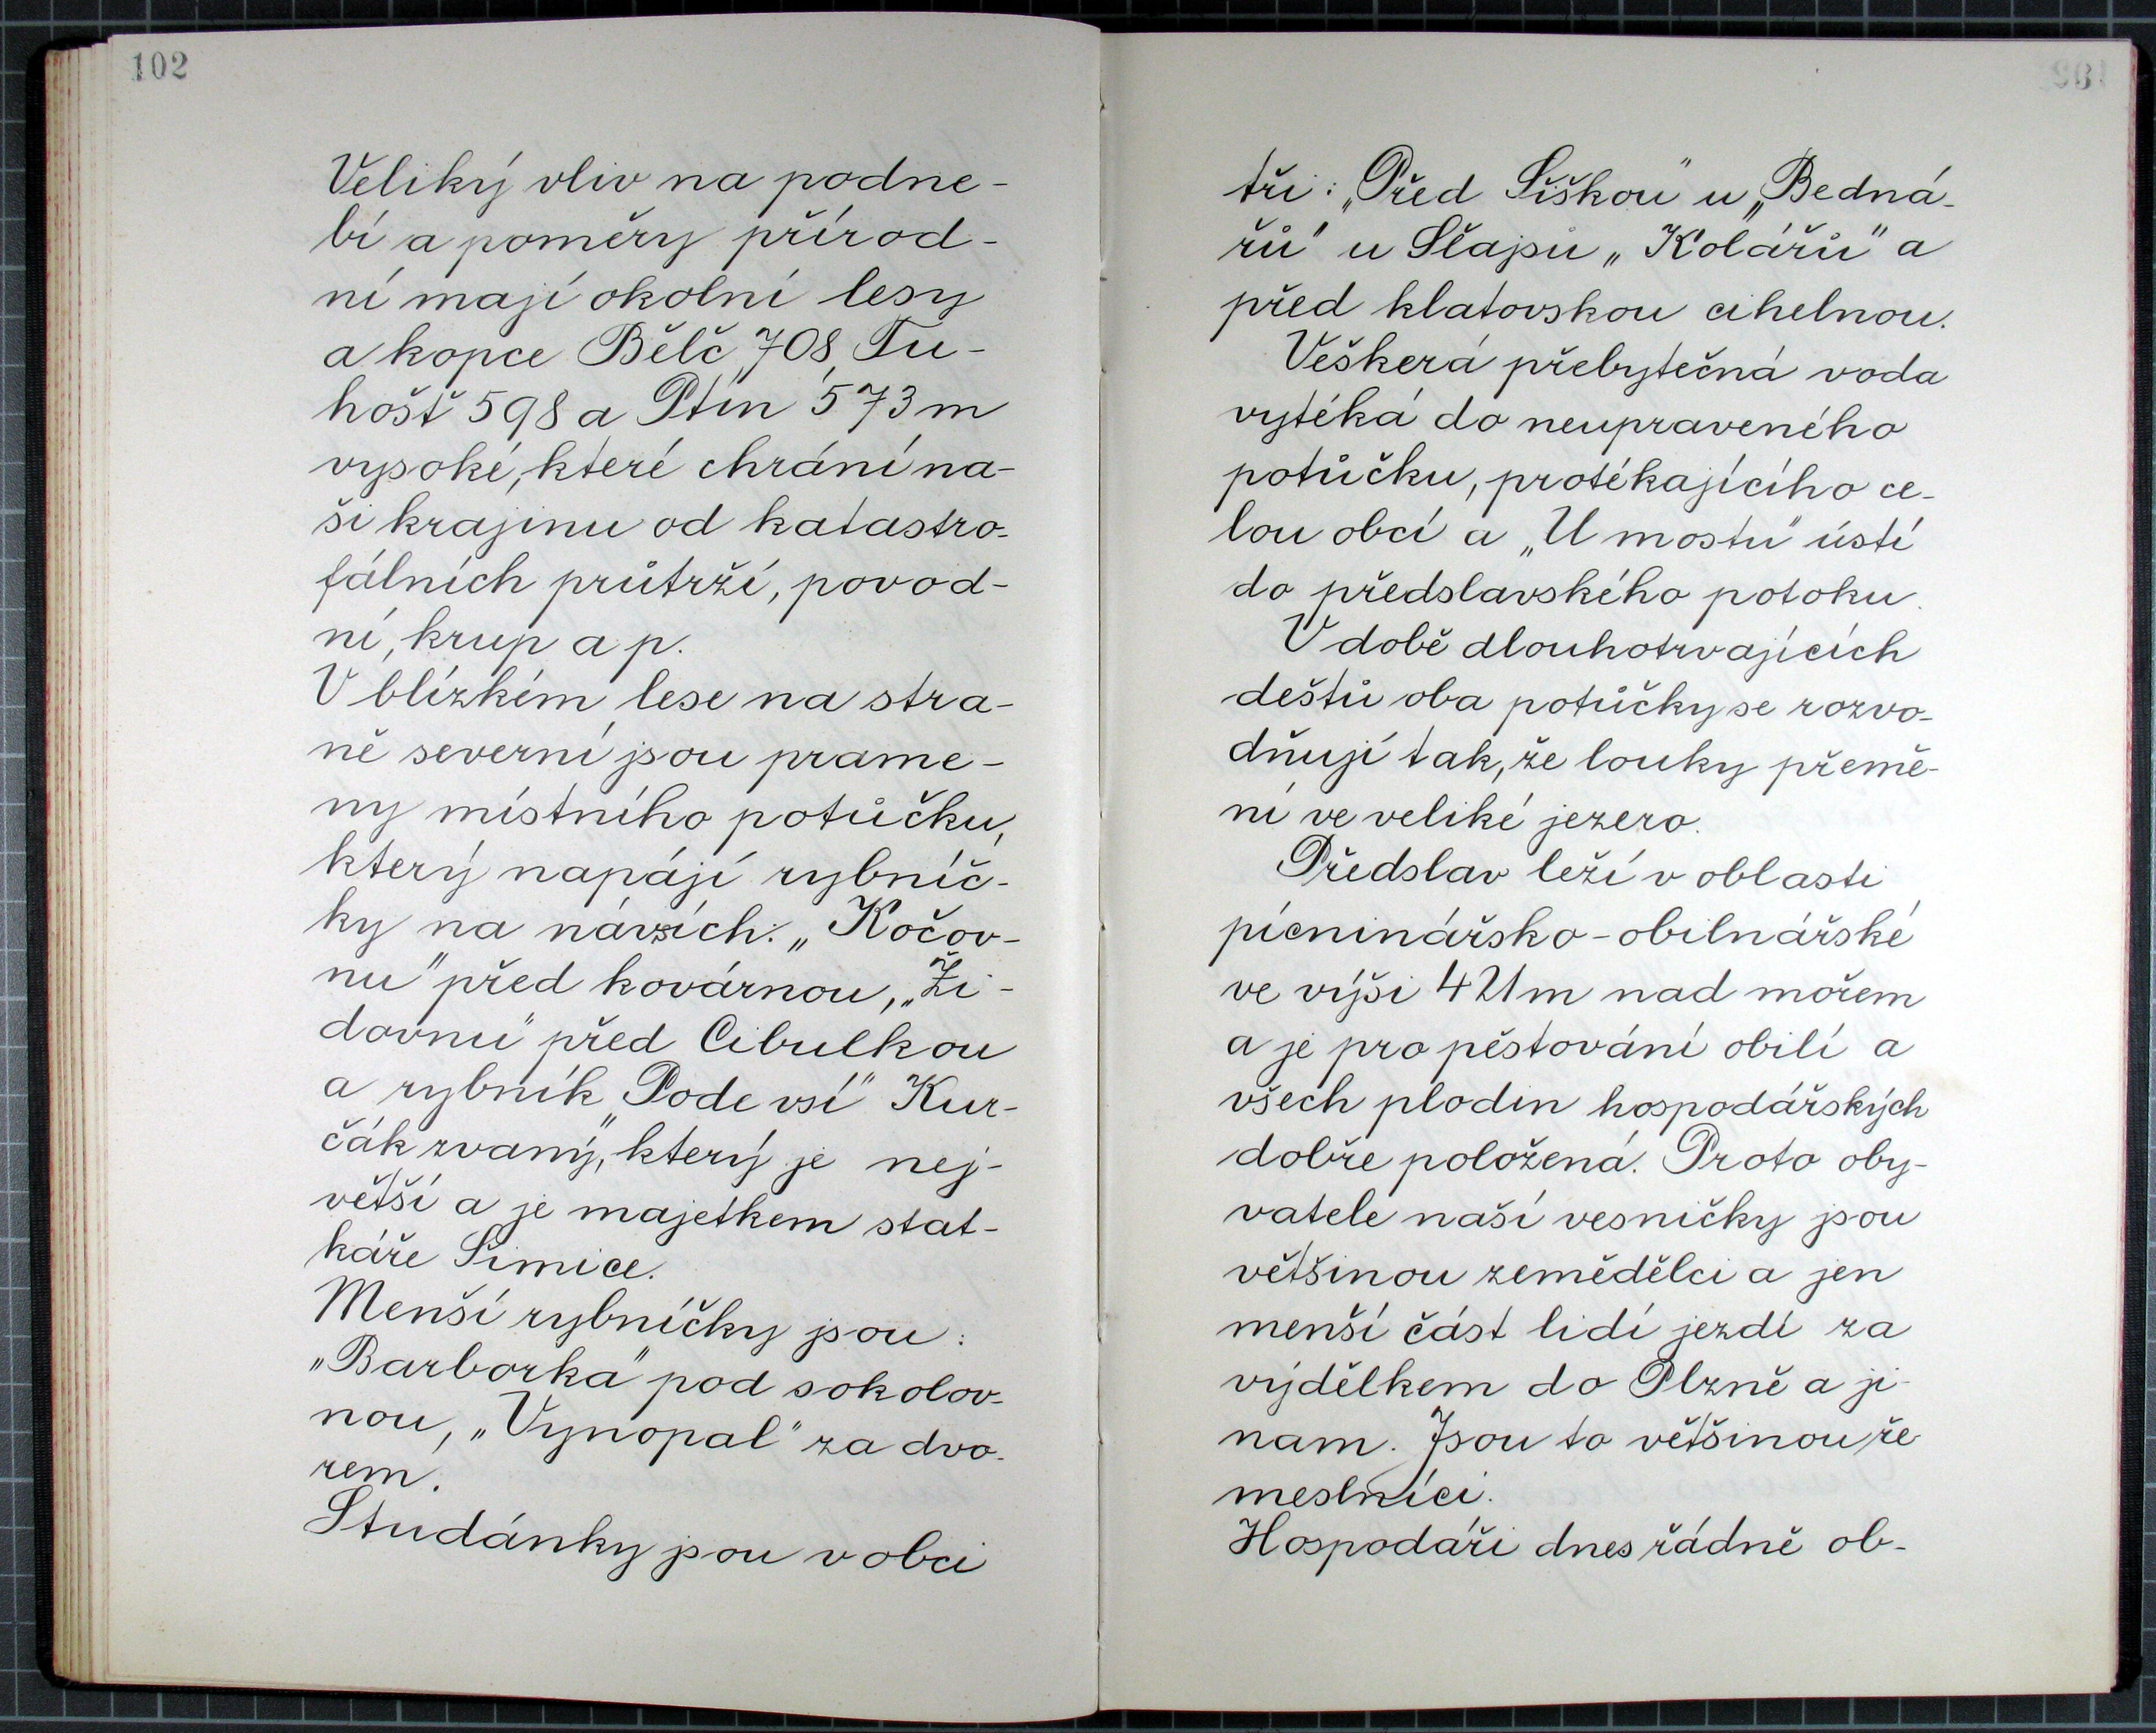 102
Veliký vliv na podne-
bí a poměry přírod-
ní mají okolní lesy
a kopce Běleč 708, Tu-
hošť 598 a Ptín 573 m
vysoké, které chrání na-
ši krajinu od katastro-
fálních průtrží, povod-
ní, krup a p.
V blízkém lese na stra-
ně severní jsou prame-
ny místního potůčku,
který napájí rybníč-
ky na návsích: „Kočov-
nu" před kovárnou, „Ži-
dovnu" před Cibulkou
a rybník „Pode vsí" Kur-
čák zvaný, který je nej-
větší a je majetkem stat-
káře Šimice.
Menší rybníčky jsou:
„Barborka" pod sokolov-
nou, „Vynopal" za dvo-
rem.
Studánky jsou v obci
tři: „Před Šiškou" u „Bedná-
řů" u Slajsů „Kolářů" a
před klatovskou cihelnou.
Veškerá přebytečná voda
vytéká do neupraveného
potůčku, protékajícího ce-
lou obcí a „U mostu" ústí
do předslavského potoku.
V době dlouhotrvajících
deštů oba potůčky se rozvo-
dňují tak, že louky přemě-
ní ve veliké jezero.
Předslav leží v oblasti
pícninářsko-obilnářské
ve výši 421 m nad mořem
a je pro pěstování obilí a
všech plodin hospodářských
dobře položená. Proto oby-
vatele naší vesničky jsou
většinou zemědělci a jen
menší část lidí jezdí za
výdělkem do Plzně a ji-
nam. Jsou to většinou ře-
meslníci.
Hospodáři dnes řádně ob-